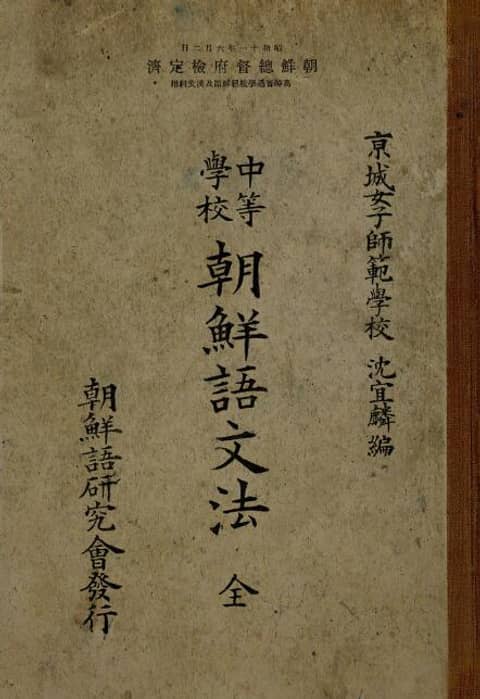 昭和十一年六月二日
朝鮮總督府檢定濟
高等普通學校朝鮮語及漢文科用
京城女子師範學校 沈宜麟編
中等
學校
朝鮮語文法 全
朝鮮語研究會發行